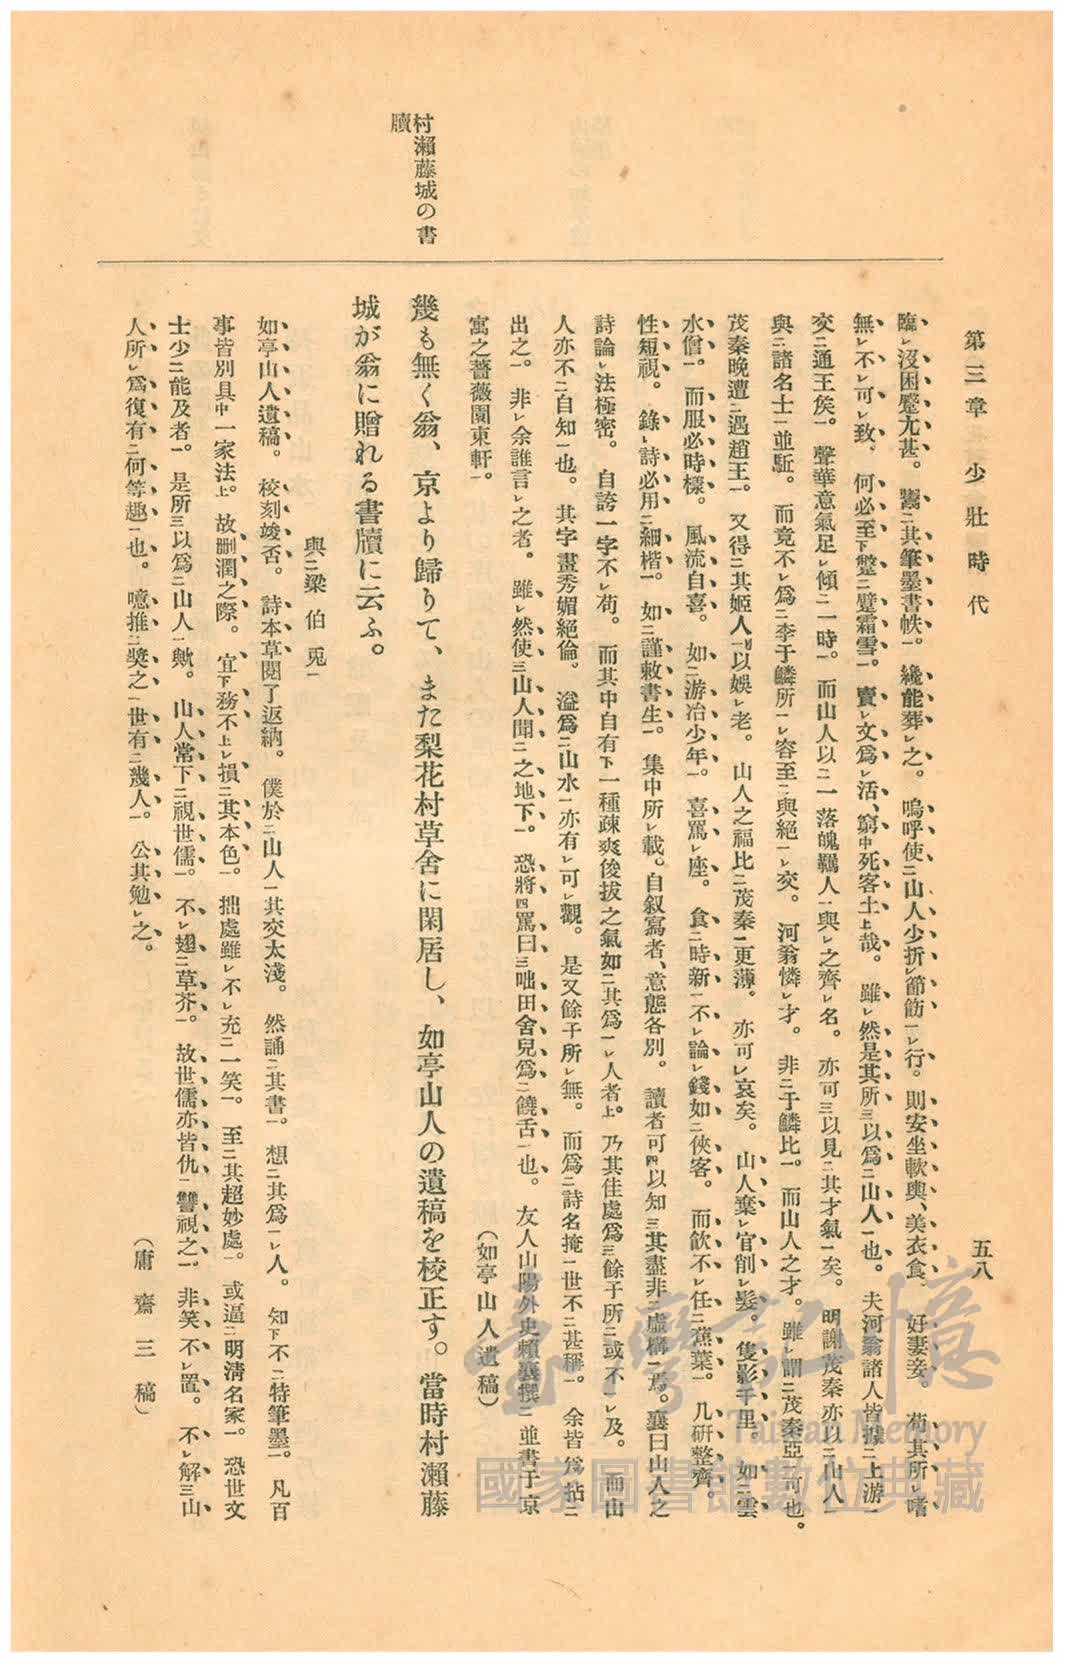 第三章 少壯時代
五八
村瀨藤城の書
牘
臨㆑沒困躄尤甚。鬻㆓其筆墨書帙㆒。纔能葬㆑之。嗚呼使㆓山人少折㆑節飭㆒㆑行。則安坐軟輿、美衣食、好妻妾。苟其所㆑嗜
無㆑不㆑可㆑致、何必至㆘蹩㆓躄霜雪㆒。賣㆑文爲㆑活、窮㆗死客土㆖哉。雖㆑然是其所㆔以爲㆓山人㆒也。夫河翁諸人皆據㆓上游㆒
交㆓通王矦㆒。聲華意氣足㆑傾㆓一時㆒。而山人以㆓一落魄羈人㆒與㆑之齊㆑名。亦可㆔以見㆓其才氣㆒矣。明謝茂秦亦以㆓山人㆒
與㆓諸名士㆒並駈。而竟不㆑爲㆓李于鱗所㆒㆑容至㆓與絕㆒㆑交。河翁憐㆑才。非㆓于鱗比㆒。而山人之才。雖㆑謂㆓茂秦亞㆒可也。
茂秦晚遭㆓遇趙王㆒。又得㆓其姬人㆒以娛㆑老。山人之福比㆓茂秦㆒更薄。亦可㆑哀矣。山人棄㆑官削㆑髮。隻影千里。如㆓雲
水僧㆒。而服必時樣。風流自喜。如㆓游冶少年㆒。喜罵㆑座。食㆓時新㆒不㆑論㆑錢如㆓俠客。而飮不㆑任㆓蕉葉㆒。几硏整齊。
性短視。錄㆑詩必用㆓細楷㆒。如㆓謹敕書生㆒。集中所㆑載。自叙寫者、意態各別。讀者可㆕以知㆔其盡非㆓虛構㆒焉。襄曰山人之
詩論㆑法極密。自誇一字不㆑苟。而其中自有㆘一種疎爽俊拔之氣如㆓其爲㆒㆑人者㆖。乃其佳處爲㆔餘子所㆓或不㆒㆑及。而山
人亦不㆓自知㆒也。其字畫秀媚絕倫。溢爲㆓山水㆒亦有㆑可㆑觀。是又餘子所㆑無。而爲㆓詩名掩㆒世不㆓甚稱㆒。余皆爲㆑拈㆓
出之㆒。非㆑余誰言㆑之者。雖㆑然使㆔山人聞㆓之地下㆒。恐將㆕罵曰㆔咄田舍兒爲㆓饒舌㆒也。友人山陽外史賴襄撰㆓並書于京
寓之薔薇園東軒㆒。
（如亭山人遺稿）
幾も無く翁、京より歸りて、また梨花村草舍に閑居し、如亭山人の遺稿を校正す。當時村瀨藤
城が翁に贈れる書牘に云ふ。
與㆓梁伯兎㆒
如亭山人遺稿。校刻竣否。詩本草閱了返納。僕於㆓山人㆒其交太淺。然誦㆓其書㆒。想㆓其爲㆒㆑人。知㆘不㆓特筆墨㆒。凡百
事皆別具㆗一家法㆖。故刪潤之際。宜㆘務不㆖㆑損㆓其本色㆒。拙處雖㆑不㆑充㆓一笑㆒。至㆓其超妙處㆒。或逼㆓明淸名家㆒。恐世文
士少㆓能及者㆒。是所㆔以爲㆓山人㆒歟。山人常下㆓視世儒㆒。不㆑翅㆓草芥㆒。故世儒亦皆仇㆓讐視之㆒。非笑不㆑置。不㆑解㆔山
人所㆑爲復有㆓何等趣㆒也。噫推㆓奬之㆒世有㆓幾人㆒。公其勉㆑之。
（庸齋三稿）
臺灣記憶
Taiwan Memory
國家圖書館數位典藏